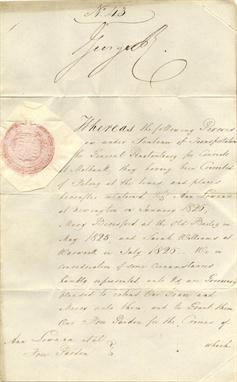 No. 43
George R.
Whereas the following Persons
are under Sentence of Transportation
General Penitentiary for Convicts
at Millbank they having been Convicted
of Felony at the times and places
hereafter mentioned Viz. Ann
at in January 1825,
Mary Beresford at the Old Bailey in
May 1825 and Sarah Williams at
Warwick in July 1825. We in
consideration of some Circumstances
humbly represented unto Us are Graciously
pleased to extend Our Grace and
Mercy unto them and to Grant them
Our Free Pardon for the Crimes of
which
Ann
Free Pardon